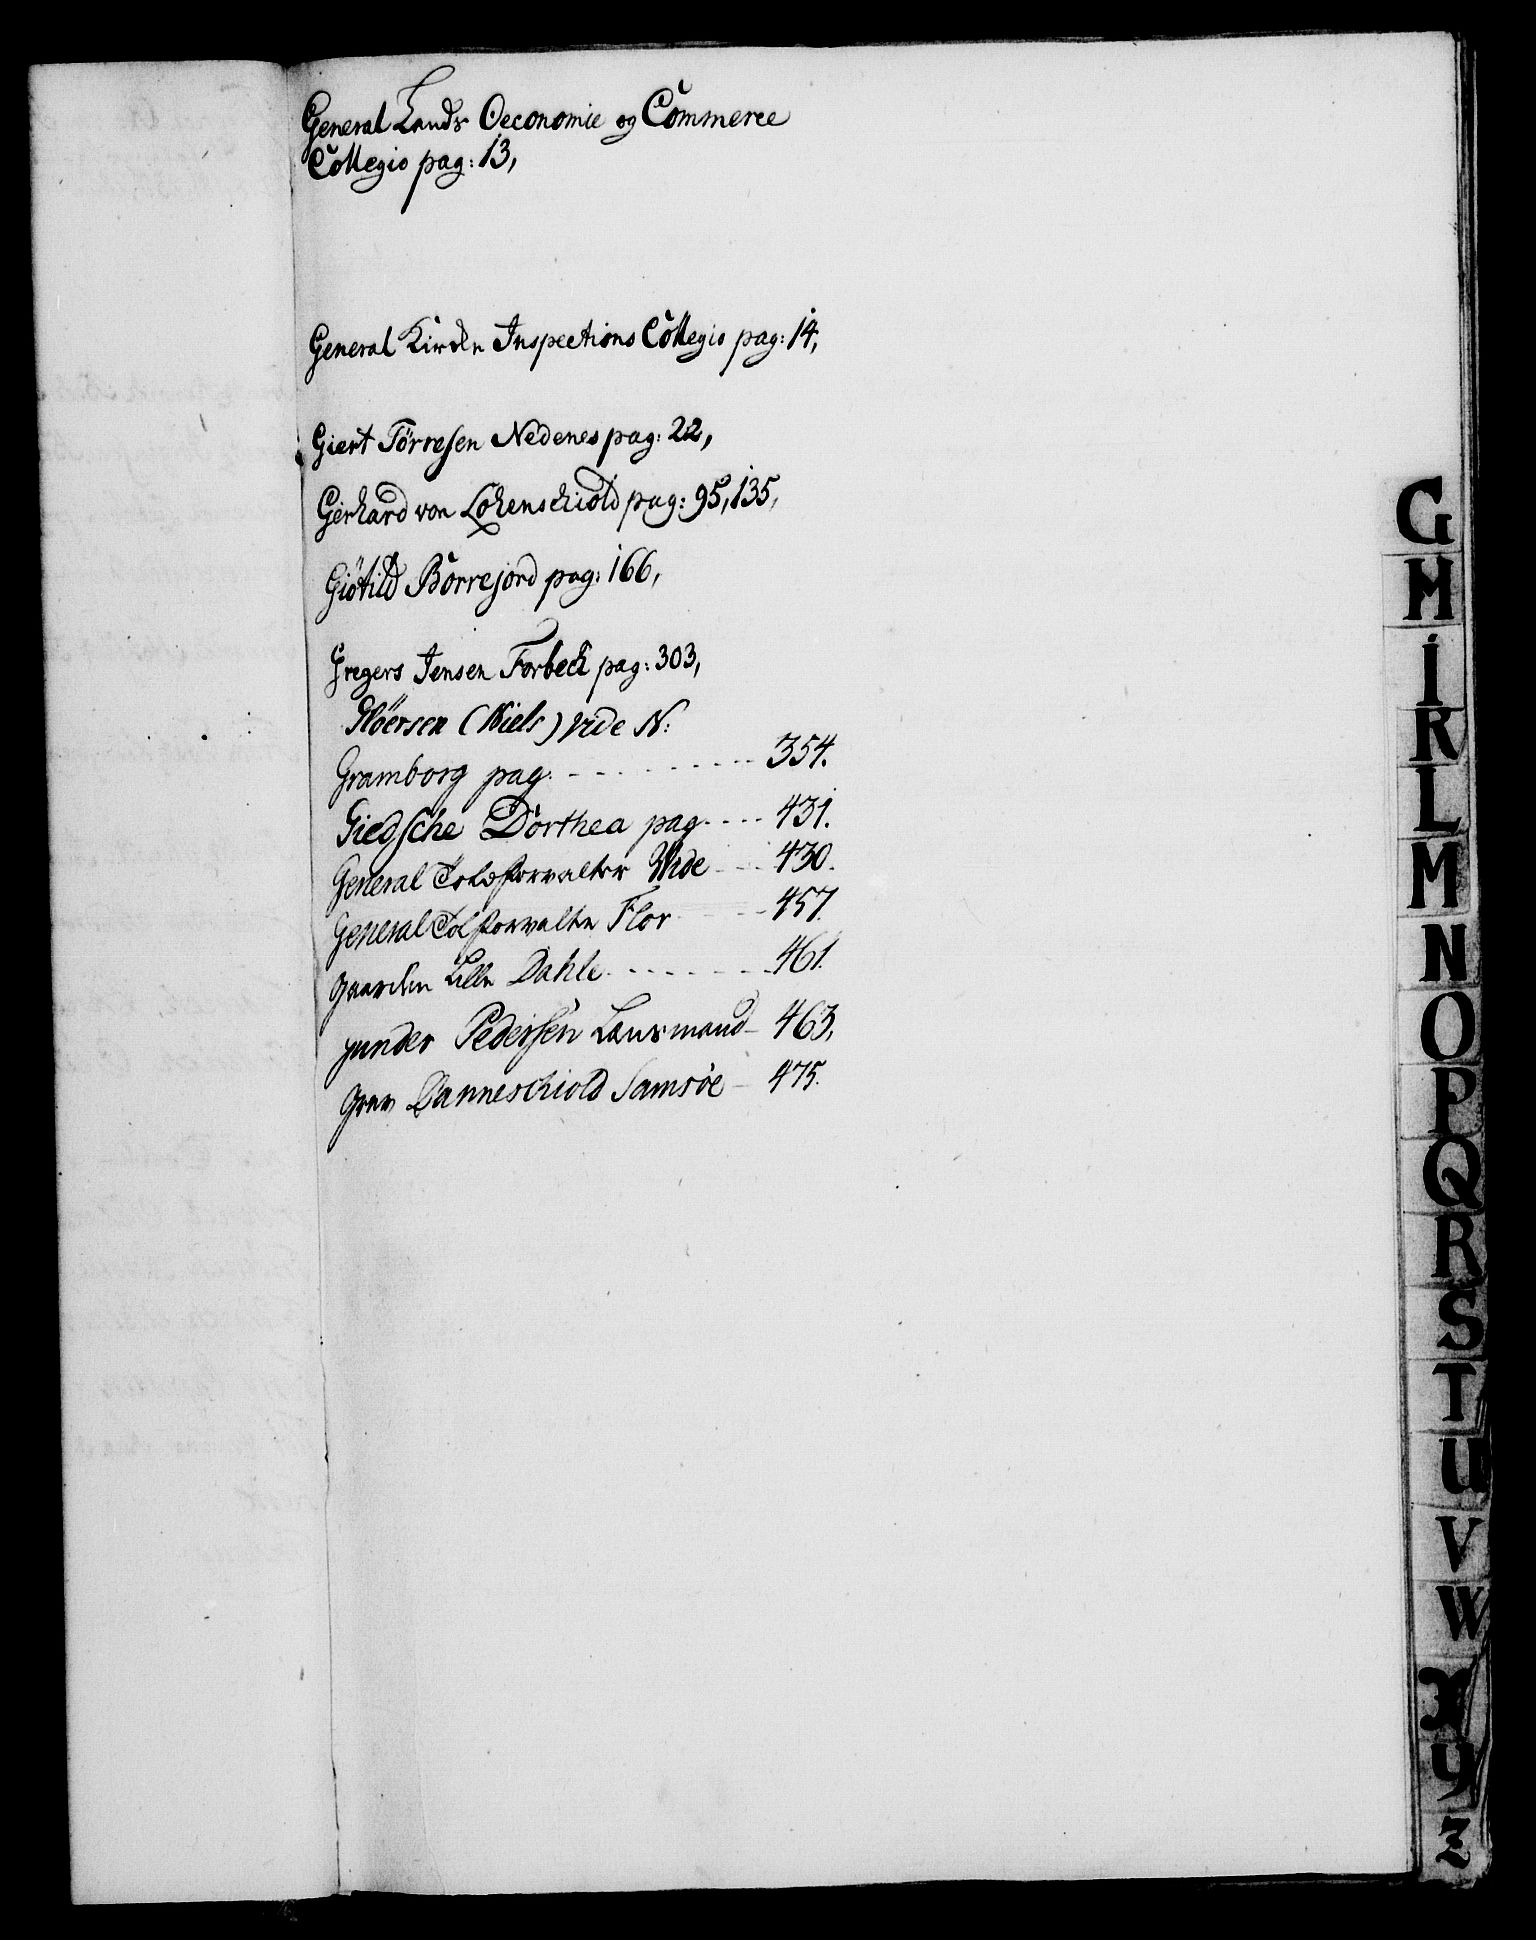 General Lands Oeconomie og Commerce
Collegio pag: 13,
General Kirke Inspections Collegio pag: 14,
Giert Törresen Nedenes pag: 22,
Gerhard von Lohenschiold pag: 95, 135,
Giötild Borrejord pag: 166,
Gregers Jensen Forbech pag: 303,
Glöersen (Niels) vide N:
Gramborg pag. 354.
Giedsche Dorthea pag. 431.
General Toldforvalter Wide 430.
General Tolforvalter Flor 457.
Gaarden Lille Dahle 461.
Gunder Pedersen Lensmand 463,
Grev Danneschiold Samsöe 475.
G
M
I
R
L
M
N
O
P
Q
R
S
T
U
V
W
X
Y
Z